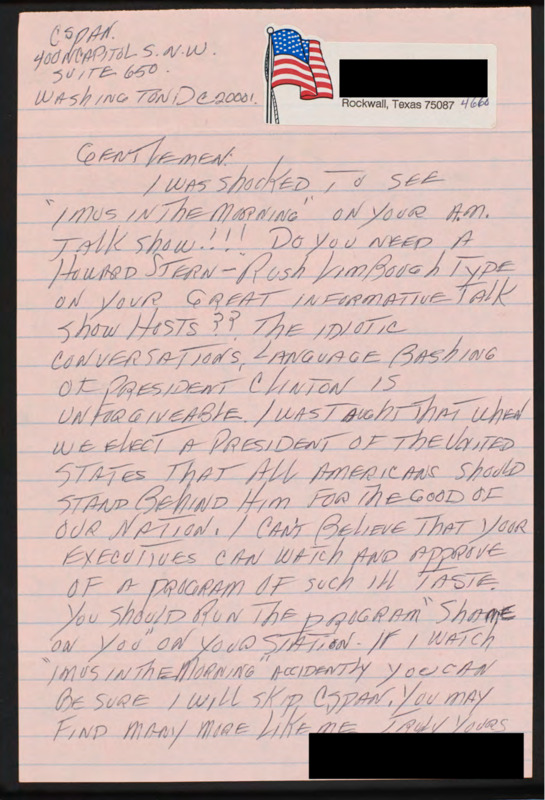 CSPAN.
400 N CAPITOL S. N.W.
SUITE 650.
WASHINGTON D C 20001.
Rockwall, Texas 75087 4660
GENTLEMEN:
I WAS SHOCKED TO SEE
"IMUS IN THE MORNING" ON YOUR A.M.
TALK SHOW!!! DO YOU NEED A
HOWARD STERN - RUSH LIMBOUGH TYPE
ON YOUR GREAT INFORMATIVE TALK
SHOW HOSTS ?? THE IDIOTIC
CONVERSATIONS, LANGUAGE BASHING
OF PRESIDENT CLINTON IS
UNFORGIVEABLE. I WAS TAUGHT THAT WHEN
WE ELECT A PRESIDENT OF THE UNITED
STATES THAT ALL AMERICANS SHOULD
STAND BEHIND HIM FOR THE GOOD OF
OUR NATION. I CAN'T BELIEVE THAT YOUR
EXECUTIVES CAN WATCH AND APPROVE
OF A PROGRAM OF SUCH ILL TASTE.
YOU SHOULD RUN THE PROGRAM "SHAME
ON YOU" ON YOUR STATION. IF I WATCH
"IMUS IN THE MORNING" ACCIDENTLY YOU CAN
BE SURE I WILL SKIP CSPAN. YOU MAY
FIND MANY MORE LIKE ME TRULY YOURS